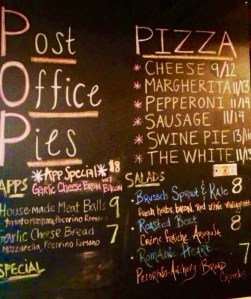 Post
Office
Pies
*App Special* 8
Garlic Cheese Bread w/ Bacon
APPS
House made Meat Balls 9
tomato Marinara, Pecorino Romano
Garlic Cheese Bread 7
Mozzarella, Pecorino Romano
SPECIAL
PIZZA
*CHEESE 9/12
*MARGHERITA 11/13
*PEPPERONI 11/14
*SAUSAGE 11/14
*SWINE PIE 13/16
*THE WHITE 11/13
SALADS
Brussels Sprout & Kale 8
Fresh herbs, bacon, red wine vinaigrette
Roasted Beet 8
Crème fraîche, Arugula
Romaine Heart 7
Pecorino-Anchovy Bread